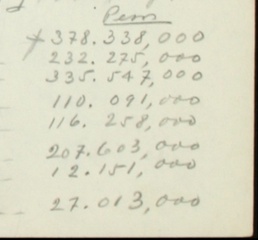 Pesos
+ 378.338,000
232.275,000
335.547,000
110.091,000
116.258,000
207.603,000
12.151,000
27.013,000